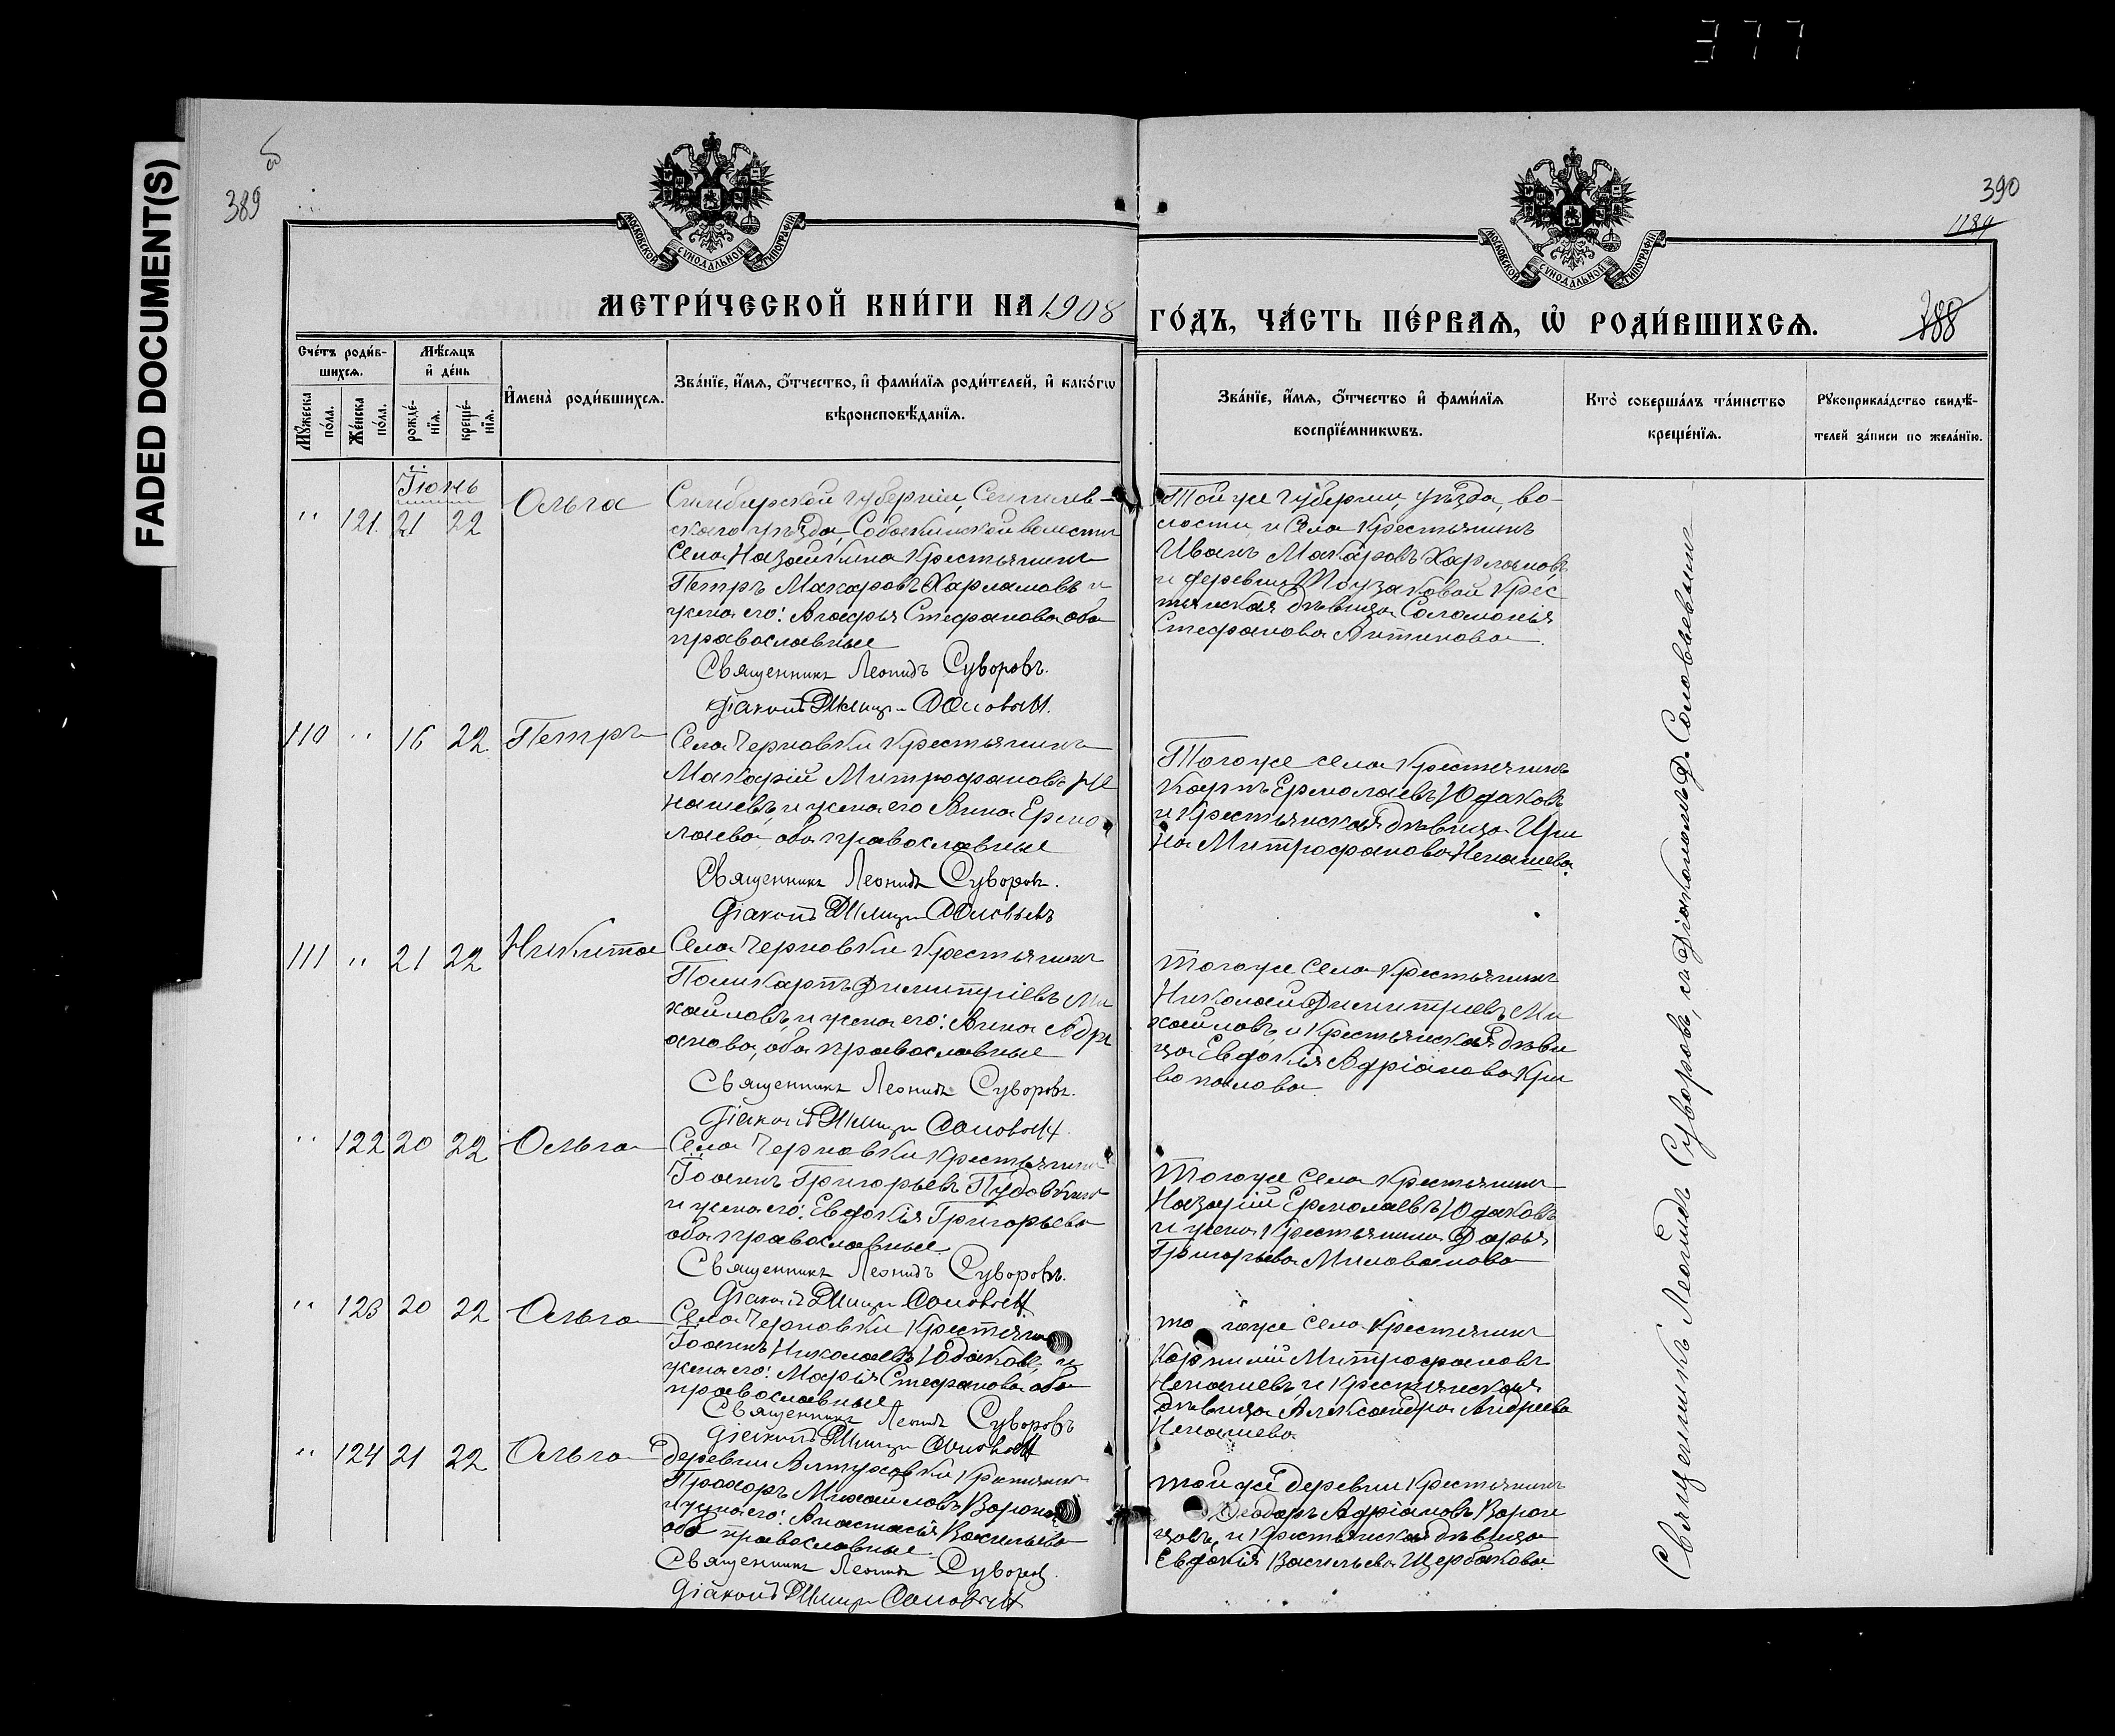 377
FADED DOCUMENT(S)
389
390
1189
388
МОСКОВСКОЙ СѴНОДАЛЬНОЙ ТИПОГРАФІИ
МОСКОВСКОЙ СѴНОДАЛЬНОЙ ТИПОГРАФІИ
МЕТРИ́ЧЕСКОЙ КНИ́ГИ НА 1908
ГО́ДЪ, ЧА́СТЬ ПЕ́РВАѦ, Ѡ҆ РОДИ́ВШИХСѦ.
Сче́тъ роди́в-
шихсѧ.
Мꙋ́жеска по́ла.
Же́нска по́ла.
Мѣ́сѧцъ
и҆ де́нь
рожде́-
нїѧ.
креще́-
нїѧ.
И҆мена̀ роди́вшихсѧ.
Зва́нїе, и҆́мѧ, ѻ҆́тчество, и҆ фами́лїѧ роди́телей, и҆ како́гѡ
вѣроисповѣ́данїѧ.
Зва́нїе, и҆́мѧ, ѻ҆́тчество и҆ фами́лїѧ
воспрїе́мникѡвъ.
Кто̀ соверша́лъ та́инство
креще́нїѧ.
Рꙋкоприкла́дство свидѣ́-
телей за́писи по жела́нїю.
Іюнь
" 121. 21 22 Ольга
Симбирской губерніи, Сенгилев-
скаго уѣзда, Собакинской волости
села Назайкина крестьянинъ
Петръ Макаровъ Харламовъ и
жена его: Агафья Стефанова оба
православные
Священникъ Леонидъ Суворовъ.
Діаконъ Димитрій Соловьевъ.
Той же губерніи, уѣзда, во-
лости и села крестьянинъ
Иванъ Макаровъ Харламовъ
и деревни Тоузаковой крес
тьянская дѣвица Соломонія
Стефанова Антипова.
110 " 16 22 Петръ
Села Черновки крестьянинъ
Макарій Митрофановъ Не
нашевъ и жена его Анна Ермо
лаева, оба православные
Священникъ Леонидъ Суворовъ.
Діаконъ Димитрій Соловьевъ
Того же села крестьянинъ
Карпъ Ермолаевъ Юдаковъ
и крестьянская дѣвица Ири
на Митрофанова Ненашева.
111 " 21 22 Никита
Села Черновки крестьянинъ
Поликарпъ Димитріевъ Ми
хайловъ, и жена его: Анна Адрі
анова, оба православные
Священникъ Леонидъ Суворовъ.
Діаконъ Димитрій Соловьевъ.
Того же села крестьянинъ
Николай Димитріевъ Ми
хайловъ, и крестьянская дѣви
ца Евдокія Адріанова Кри
вопалова
" 122 20 22 Ольга
Села Черновки крестьянинъ
Іоаннъ Григорьевъ Пудовкинъ
и жена его: Евдокія Григорьева
оба православные
Священникъ Леонидъ Суворовъ.
Діаконъ Димитрій Соловьевъ
Того же села крестьянинъ
Назарій Ермолаевъ Юдаковъ
и жена крестьянина Дарья
Григорьева Милованова
" 123 20 22 Ольга
Села Черновки крестьянинъ
Іоаннъ Николаевъ Юдаковъ, и
жена его: Марія Стефанова оба
православные
Священникъ Леонидъ Суворовъ
Діаконъ Димитрій Соловьевъ
того же села крестьянинъ
Корнилій Митрофановъ
Ненашевъ, и крестьянская
дѣвица Александра Андреева
Ненашева
" 124 21 22 Ольга
Деревни Алтуховки крестьянинъ
Прохоръ Михайловъ Воронцовъ
и жена его: Анастасія Васильева
оба православные
Священникъ Леонидъ Суворовъ.
Діаконъ Димитрій Соловьевъ
той же деревни крестьянинъ
Ѳеодоръ Адріановъ Ворон
цовъ, и крестьянская дѣвица
Евдокія Васильева Щербакова.
Священникъ Леонидъ Суворовъ, съ Діакономъ Д. Соловьевымъ